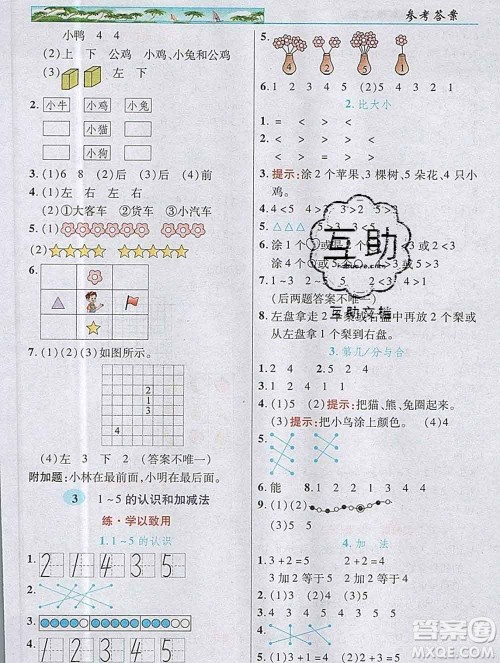 参考答案
小鸭 4 4
(2)上 下 公鸡 小鸡,小兔和公鸡
(3) 左 下
2. 小牛 小鸡 小兔
小猫
小狗
3. (1)6 8 (2)后 (3)后 (4)前
4. (1)左 右 左 右
(2)①大客车 ②货车 ③小汽车
5. (1)
(2)
6.
7. (1)(2)(3)如图所示。
2
4
3
1
(4)左 3 下 2 (答案不唯一)
附加题:小林在最前面,小明在最后面。
3 1~5的认识和加减法
练·学以致用
1. 1~5的认识
1. 2 1 4 3 5
2.
3.
4. 2 1 4 3 5
5.
5 2 4 1
6. 1 2 3 4 5 (2)5 4 3 2 1
2. 比大小
1. < > < >
2. < > > > < >
3. 提示:涂2个苹果,3棵树,5朵花,4只小
鸡。
5. △△△
8. 左盘拿掉2个梨或右盘中再放2个梨或
从左盘拿1个梨到右盘。
3. 第几/分与合
1. 2 4
2. 1 3 2 4
4. (1)(2)提示:把猫、熊、兔圈起来。
(3)提示:把小鸟涂上颜色。
5.
6. 能 8. 1 2 2 1 3 4 4
9. (1)(2)
(3)5 5
4. 加 法
1. 3+2=5 2. 2+3=5
3加2等于5 2加3等于5
互助
互助文档
答案圈
MXQE.COM